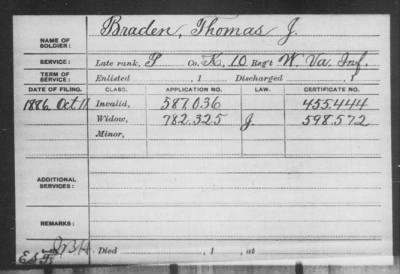 NAME OF SOLDIER: Braden, Thomas J.
SERVICE: Late rank, P Co. K, 10 Regt W. Va. Inf.
TERM OF SERVICE: Enlisted , 1 Discharged , 1
DATE OF FILING. CLASS. APPLICATION NO. LAW. CERTIFICATE NO.
1886, Oct 11 Invalid, 587.036 455.444
Widow, 782.325 J. 598.572
Minor,
ADDITIONAL SERVICES:
REMARKS:
Died , 1 , at